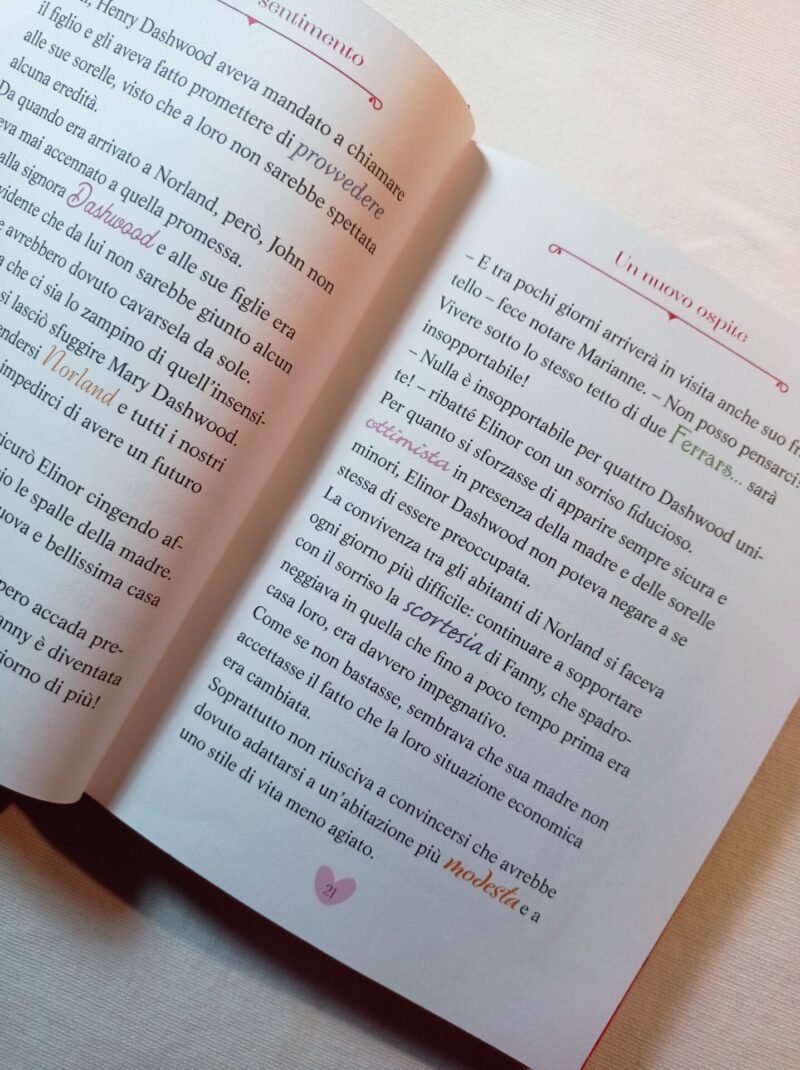 sentimento
Henry Dashwood aveva mandato a chiamare
il figlio e gli aveva fatto promettere di provvedere
alle sue sorelle, visto che a loro non sarebbe spettata
alcuna eredità.
Da quando era arrivato a Norland, però, John non
mai accennato a quella promessa.
alla signora Dashwood e alle sue figlie era
che da lui non sarebbe giunto alcun
avrebbero dovuto cavarsela da sole.
che ci sia lo zampino di quell'insensi-
si lasciò sfuggire Mary Dashwood.
Norland e tutti i nostri
impedirci di avere un futuro
Elinor cingendo af-
le spalle della madre.
e bellissima casa
accada pre-
è diventata
di più!
Un nuovo ospite
– E tra pochi giorni arriverà in visita anche suo fra
tello – fece notare Marianne. – Non posso pensarci!
Vivere sotto lo stesso tetto di due Ferrars... sarà
insopportabile!
– Nulla è insopportabile per quattro Dashwood uni-
te! – ribatté Elinor con un sorriso fiducioso.
Per quanto si sforzasse di apparire sempre sicura e
ottimista in presenza della madre e delle sorelle
minori, Elinor Dashwood non poteva negare a se
stessa di essere preoccupata.
La convivenza tra gli abitanti di Norland si faceva
ogni giorno più difficile: continuare a sopportare
con il sorriso la scortesia di Fanny, che spadro-
neggiava in quella che fino a poco tempo prima era
casa loro, era davvero impegnativo.
Come se non bastasse, sembrava che sua madre non
accettasse il fatto che la loro situazione economica
era cambiata.
Soprattutto non riusciva a convincersi che avrebbe
dovuto adattarsi a un'abitazione più modesta e a
uno stile di vita meno agiato.
21